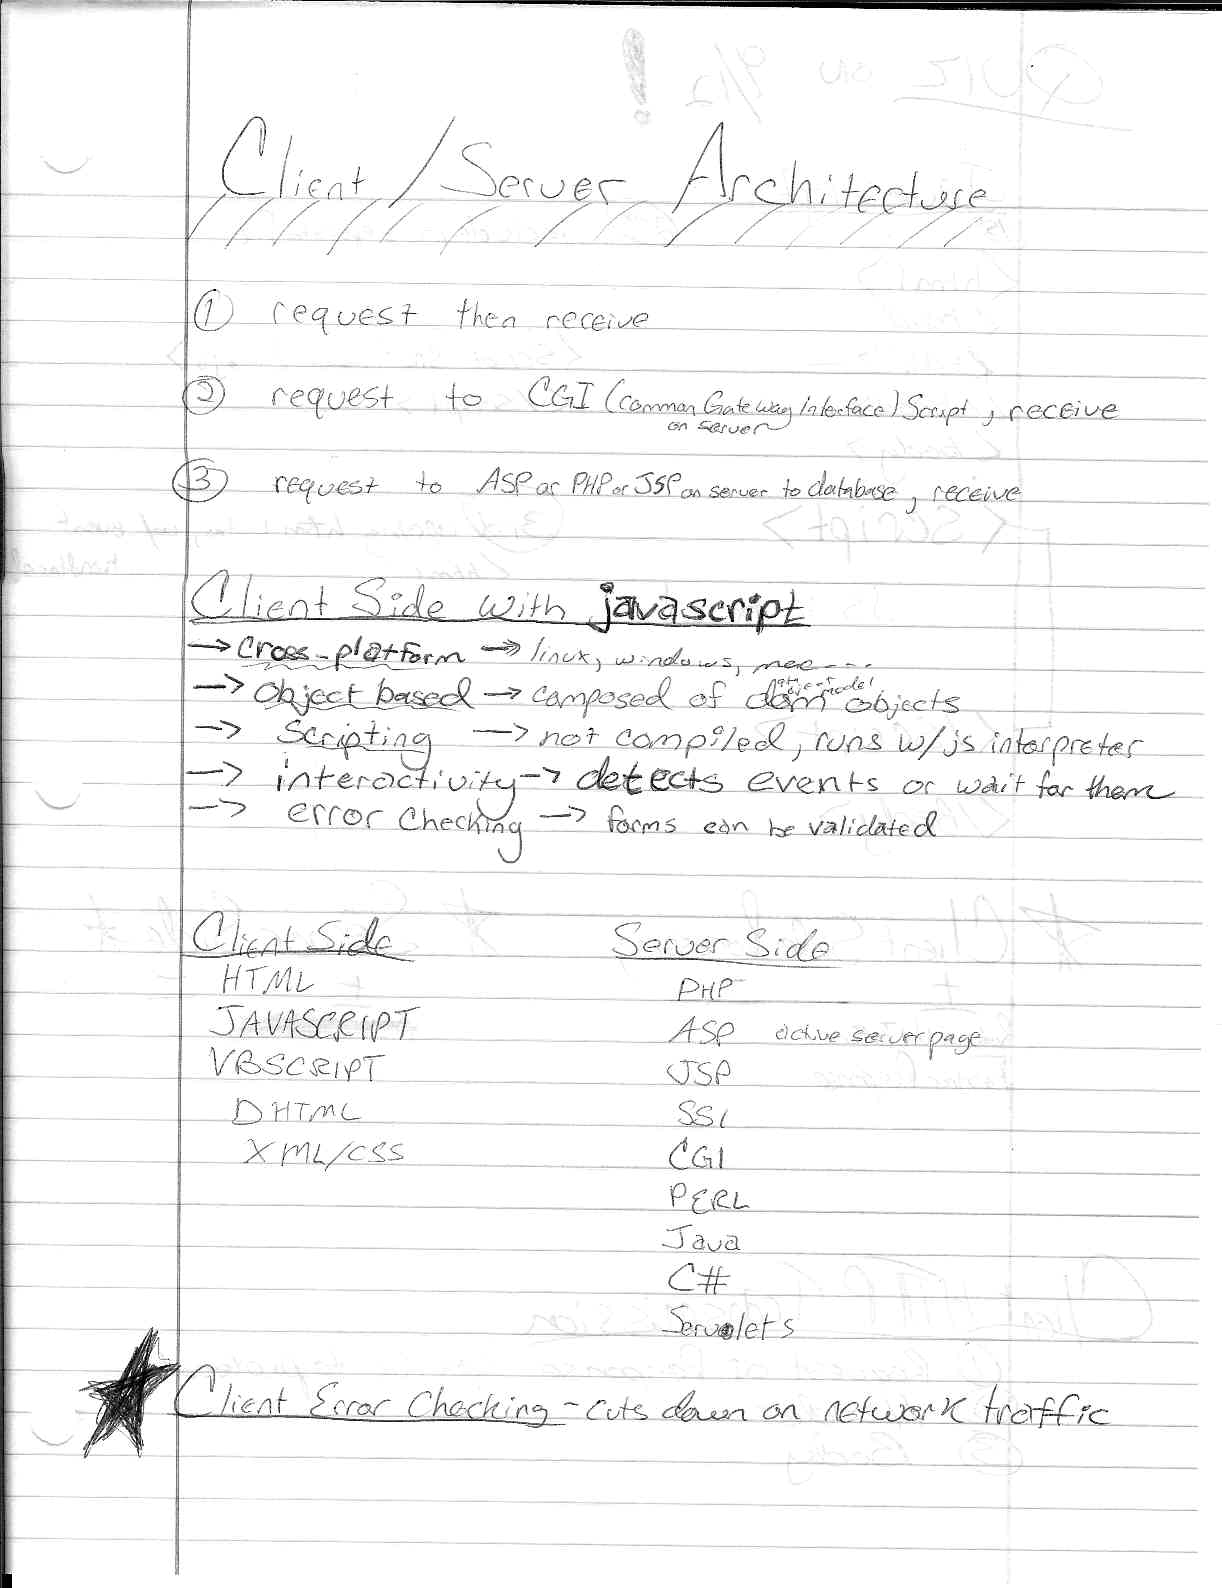 Client / Server Architecture
① request then receive
② request to CGI (common Gateway interface) Script, receive
on server
③ request to ASP or PHP or JSP on server to database, receive
Client Side with javascript
→ Cross-platform → linux, windows, mac...
→ Object based → composed of dom objects
→ Scripting → not compiled, runs w/ js interpreter
→ interactivity → detects events or wait for them
→ error checking → forms can be validated
Client Side Server Side
HTML PHP
JAVASCRIPT ASP active server page
VBSCRIPT JSP
DHTML SSI
XML/CSS CGI
PERL
Java
C#
Servlets
Client Error Checking - cuts down on network traffic